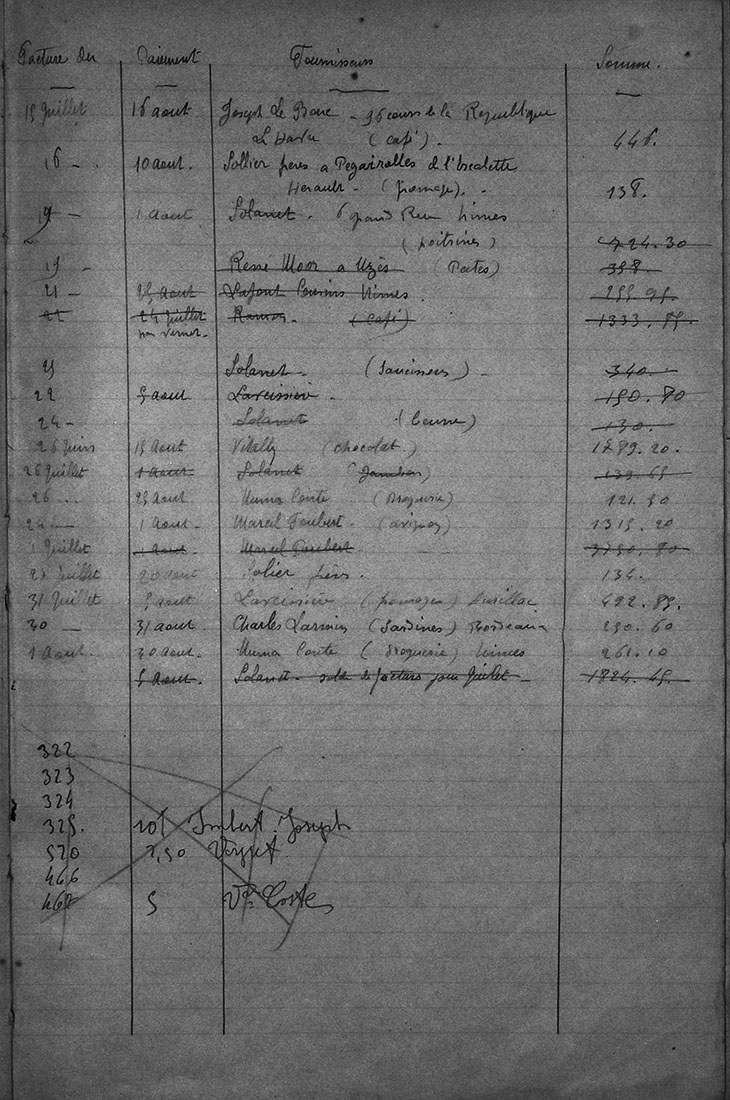 Facture du Paiement Fournisseurs Somme.
15 Juillet 16 aout Joseph Le Banc - 36 cours de la Republique
Le Havre (café). 446.
16 - 10 aout. Sollier freres a Pegairolles de l'Escalette
Herault - (fromage). 138.
19 - 1 aout Solanet. 6 grand Rue Nimes
(poitrines) 724.30
19 - Rene Moor a Uzès (Pates) 398.
21 - 25 aout Lafont Cousins Nimes. 255.95.
22 24 Juillet Ramon. (café) 1333.85.
non verser.
25 Solanet. (Saucissons) 340.
22 5 aout Larcissière. 150.70
24 - Solanet (beurre) 130.
26 Juin 15 Aout Vitally (chocolat) 1789.20.
26 Juillet 1 aout Solanet (Jambon) 139.65
26 25 aout Numa Conte (Droguerie) 121.50
24 1 aout - Marcel Foubert - (Avignon) 1315.20
1 Juillet 1 aout. Marcel Foubert 3750.80
27 Juillet 20 aout Solier frères. 134.
31 Juillet 5 aout Larcissière (fromages) Aurillac 492.85.
30 - 31 aout Charles (Sardines) Bordeaux 230.60
1 Aout. 30 aout. Numa Conte (Droguerie) Nimes 261.10
5 Aout. Solanet - solde de facture pour Juillet - 1824.45.
322
323
324
325. 10f Imbert Joseph
520 2,50
466
467 5 Vve Coste